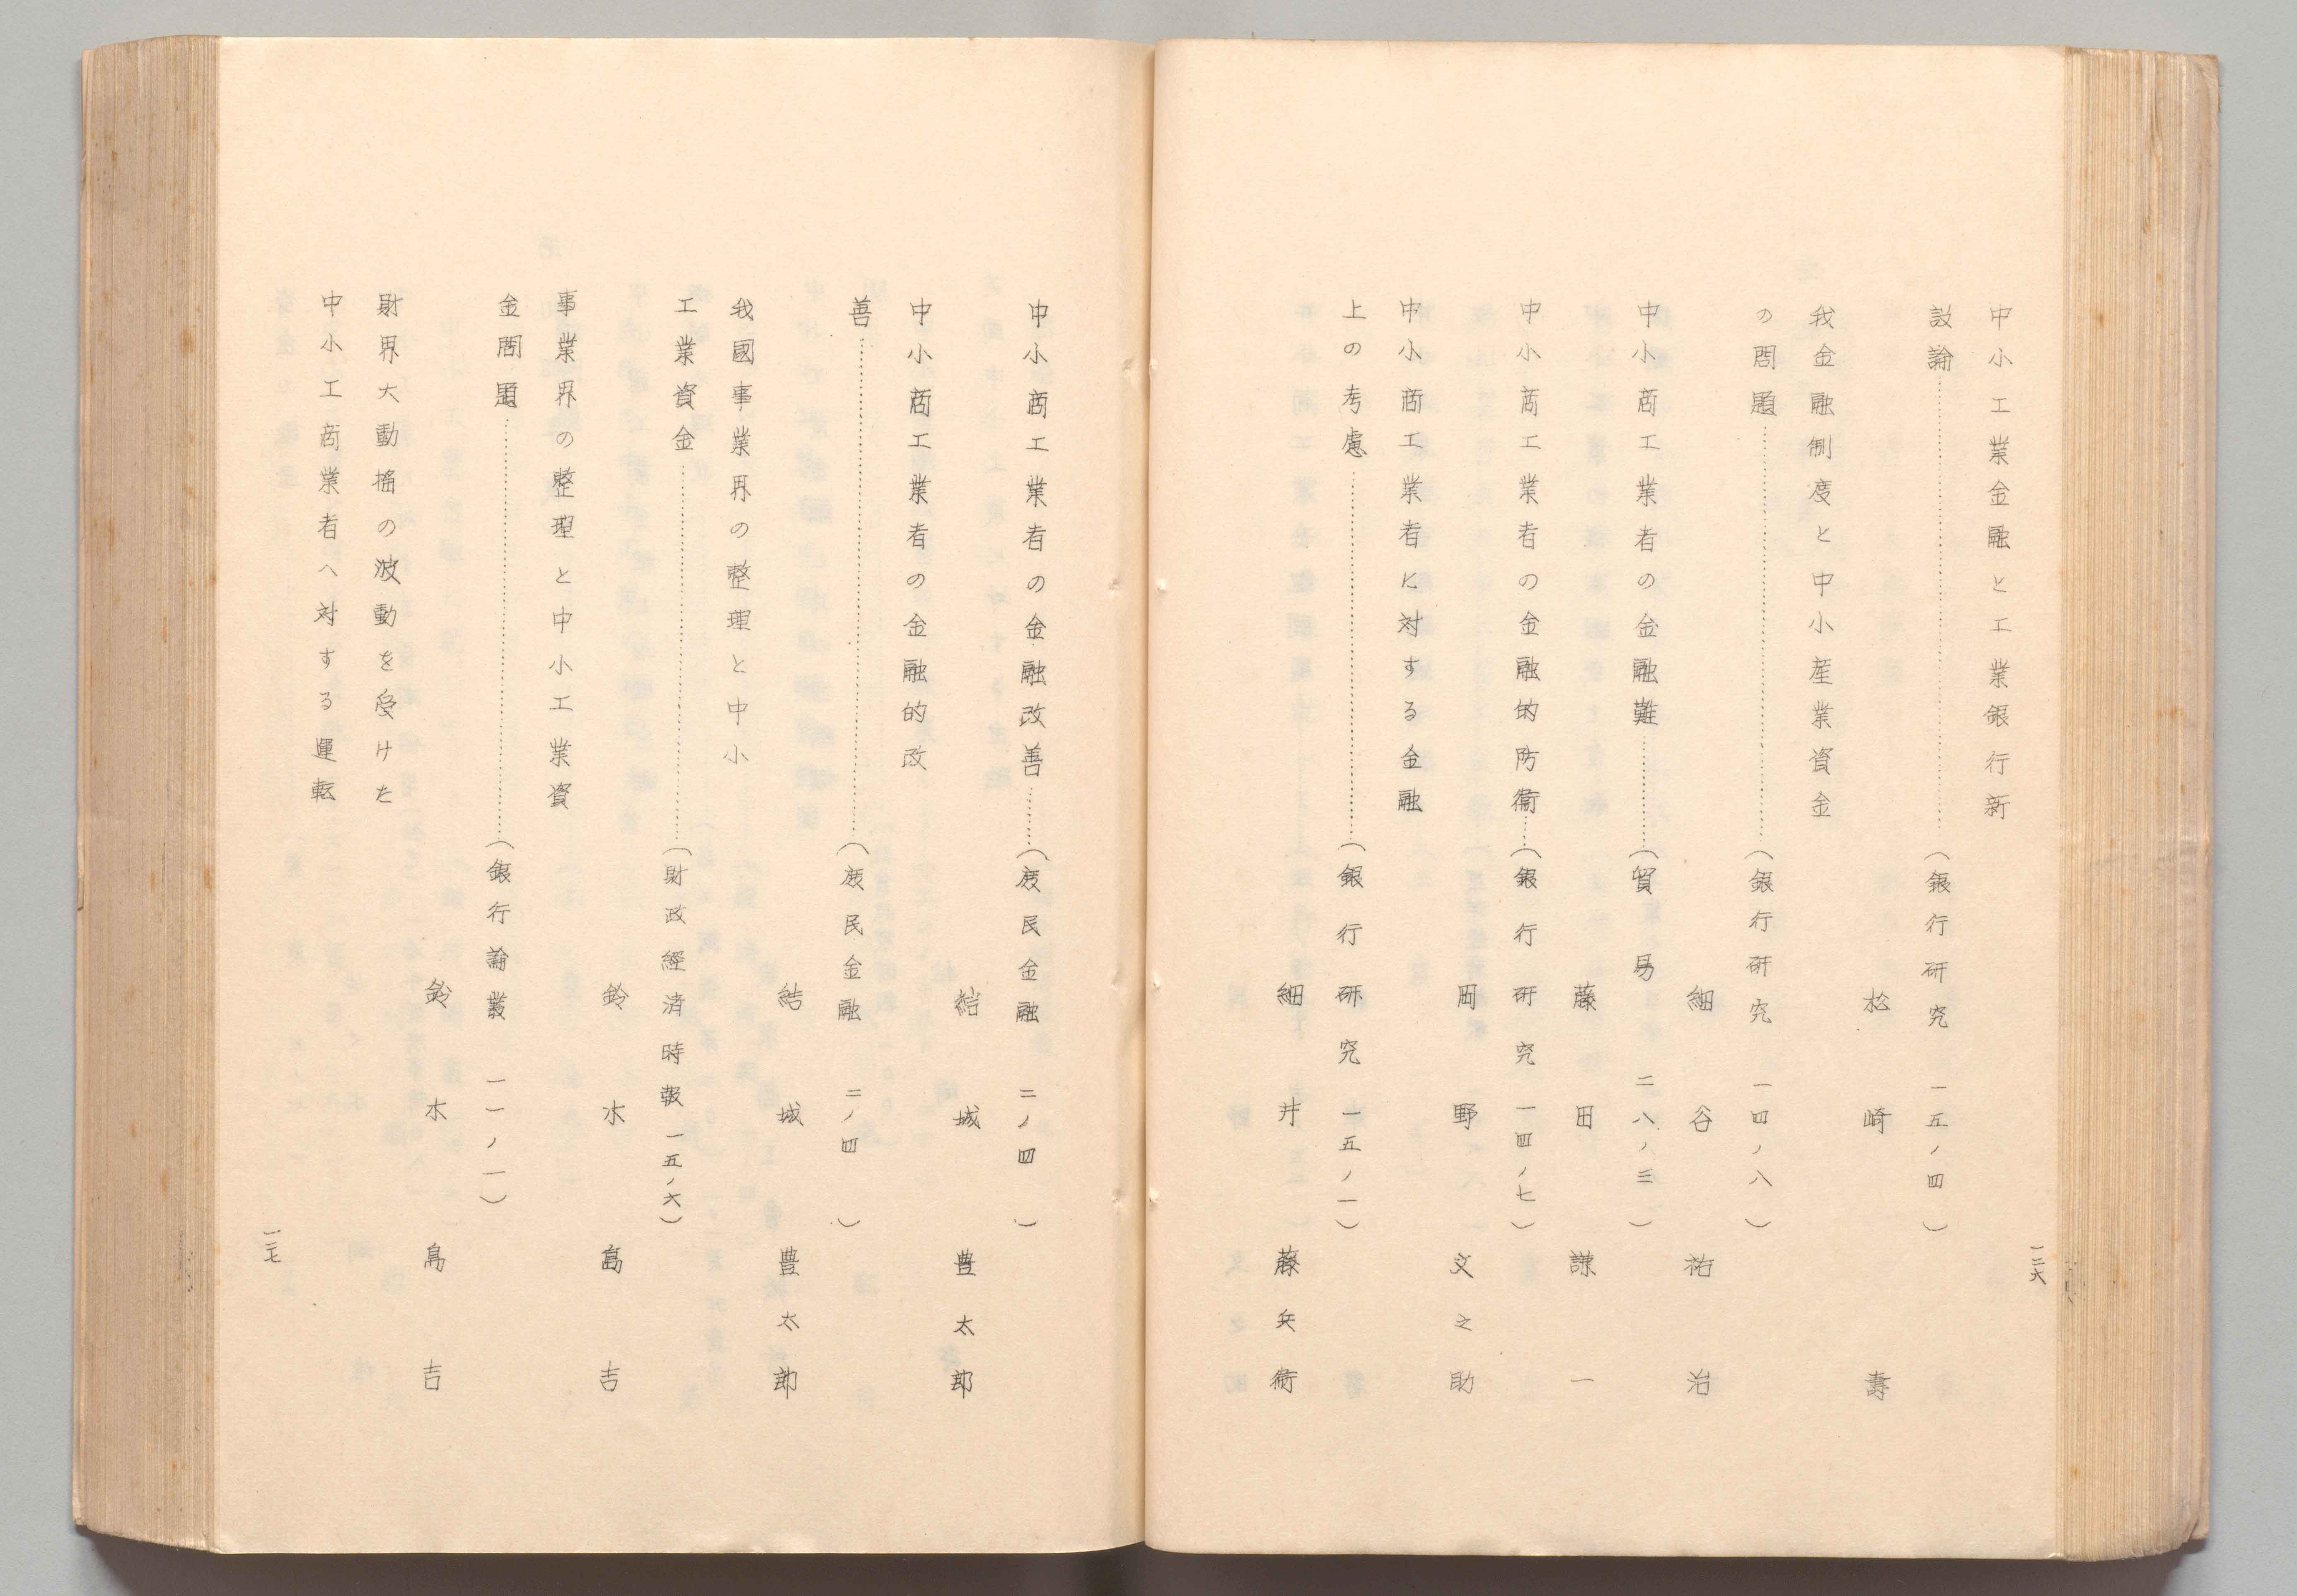 中小工業金融と工業銀行新
設論…………(銀行研究 一五ノ四)
松崎 壽
我金融制度と中小産業資金
の問題…………(銀行研究 一四ノ八)
細谷祐治
中小商工業者の金融難……(貿易 二八ノ三)
藤田謙一
中小商工業者の金融的防衞…(銀行研究 一四ノ七)
岡野文之助
中小商工業者に対する金融
上の考慮…………(銀行研究 一五ノ一)
細井藤兵衛
一二六
中小商工業者の金融改善……(庶民金融 二ノ四)
結城豊太郎
中小商工業者の金融的改
善…………(庶民金融 二ノ四)
結城豊太郎
我國事業界の整理と中小
工業資金…………(財政経済時報 一五ノ六)
鈴木島吉
事業界の整理と中小工業資
金問題…………(銀行論叢 一一ノ一)
鈴木島吉
財界大動揺の波動を受けた
中小工商業者へ対する運転
一二七